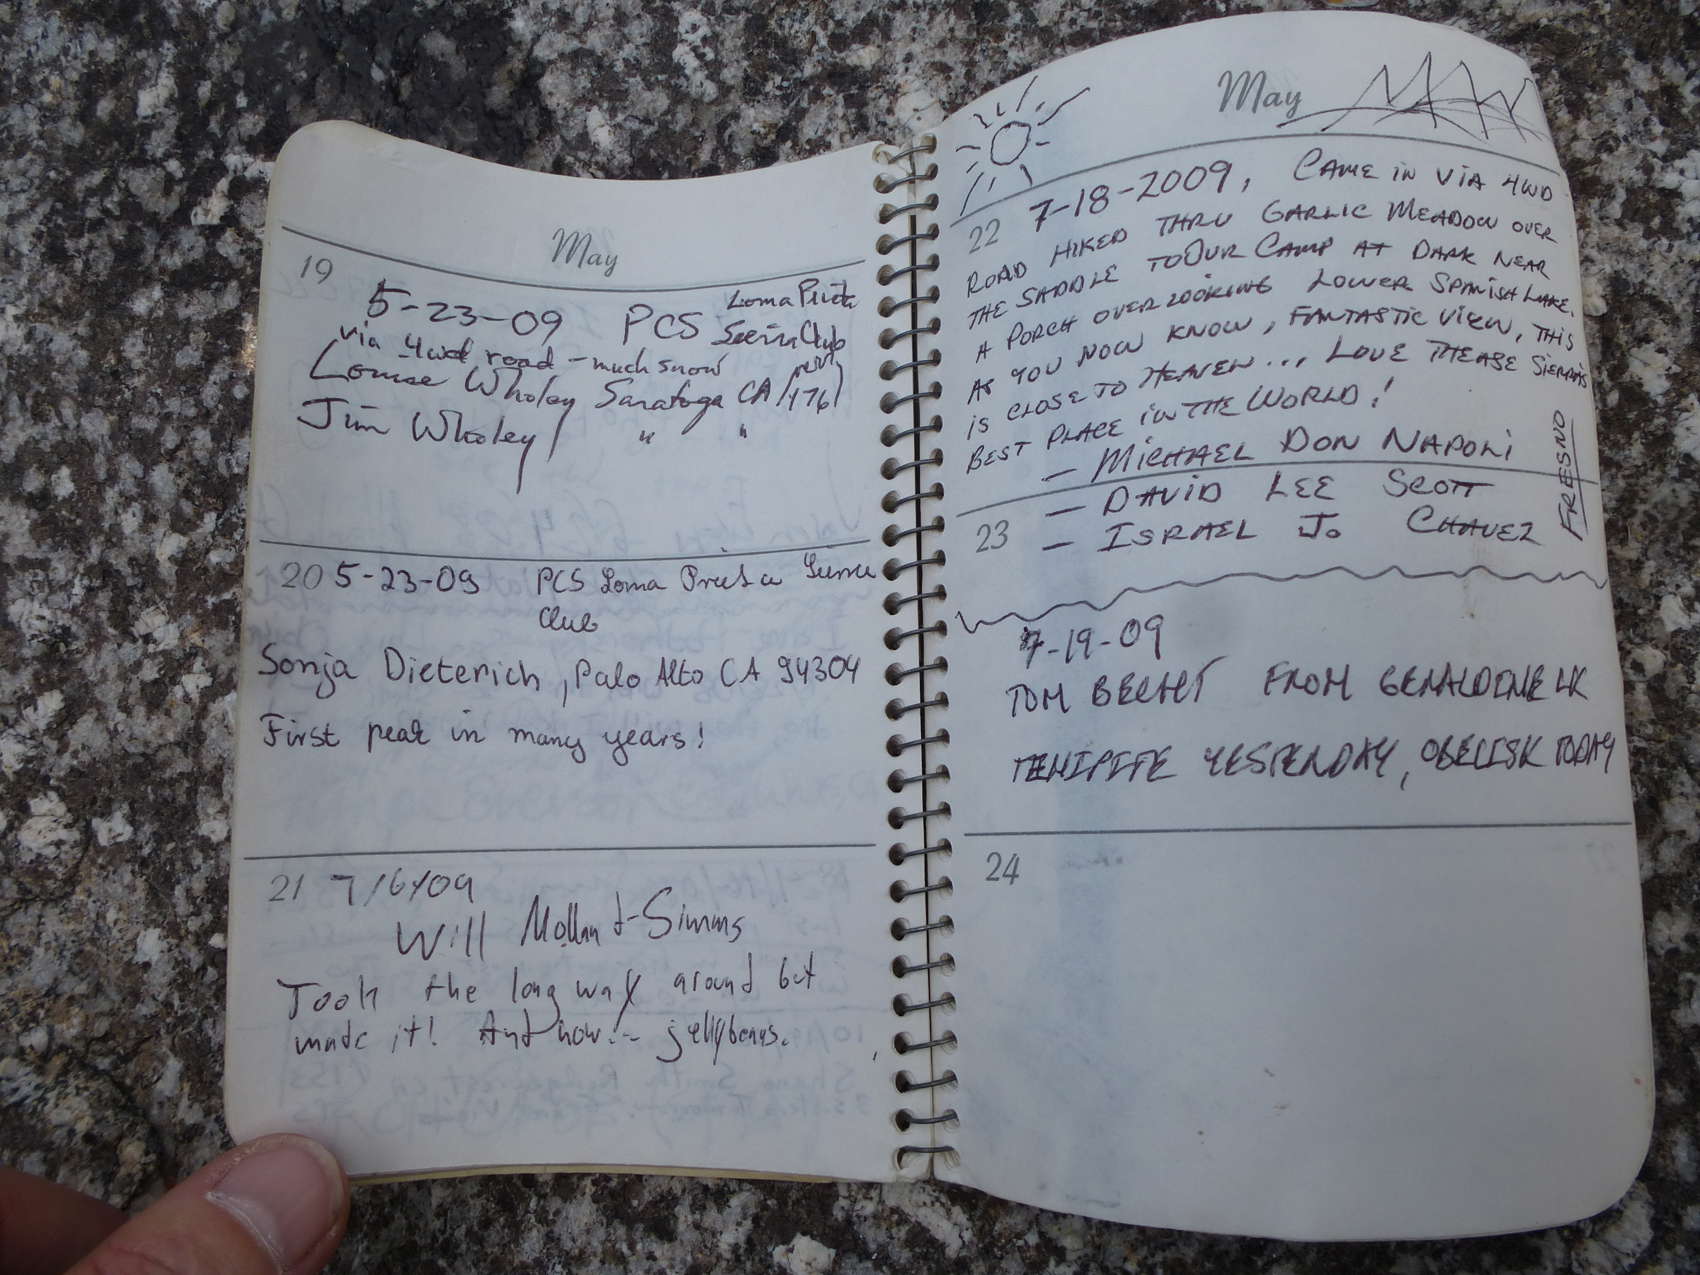 May
19
5-23-09 PCS Loma Prieta
Sierra Club
via 4wd road - much snow
Louise Wholey Saratoga CA /176)
Jim Wholey / " "
20 5-23-09 PCS Loma Prieta Sierra
Club
Sonja Dieterich, Palo Alto CA 94304
First peak in many years!
21 7/6/09
Will Molland-Simms
Took the long way around but
made it! And now... jellybeans.
May
22 7-18-2009, CAME IN VIA 4WD
ROAD HIKED THRU GARLIC MEADOW OVER
THE SADDLE TO OUR CAMP AT DARK NEAR
A PORCH OVERLOOKING LOWER SPANISH LAKE.
AS YOU NOW KNOW, FANTASTIC VIEW, THIS
IS CLOSE TO HEAVEN... LOVE THEASE SIERRAS
BEST PLACE IN THE WORLD!
- MICHAEL DON NAPOLI
- DAVID LEE SCOTT
23 - ISRAEL JO CHAVEZ
FRESNO
7-19-09
TOM BECHT FROM GERALDINE LK
TEHIPITE YESTERDAY, OBELISK TODAY
24